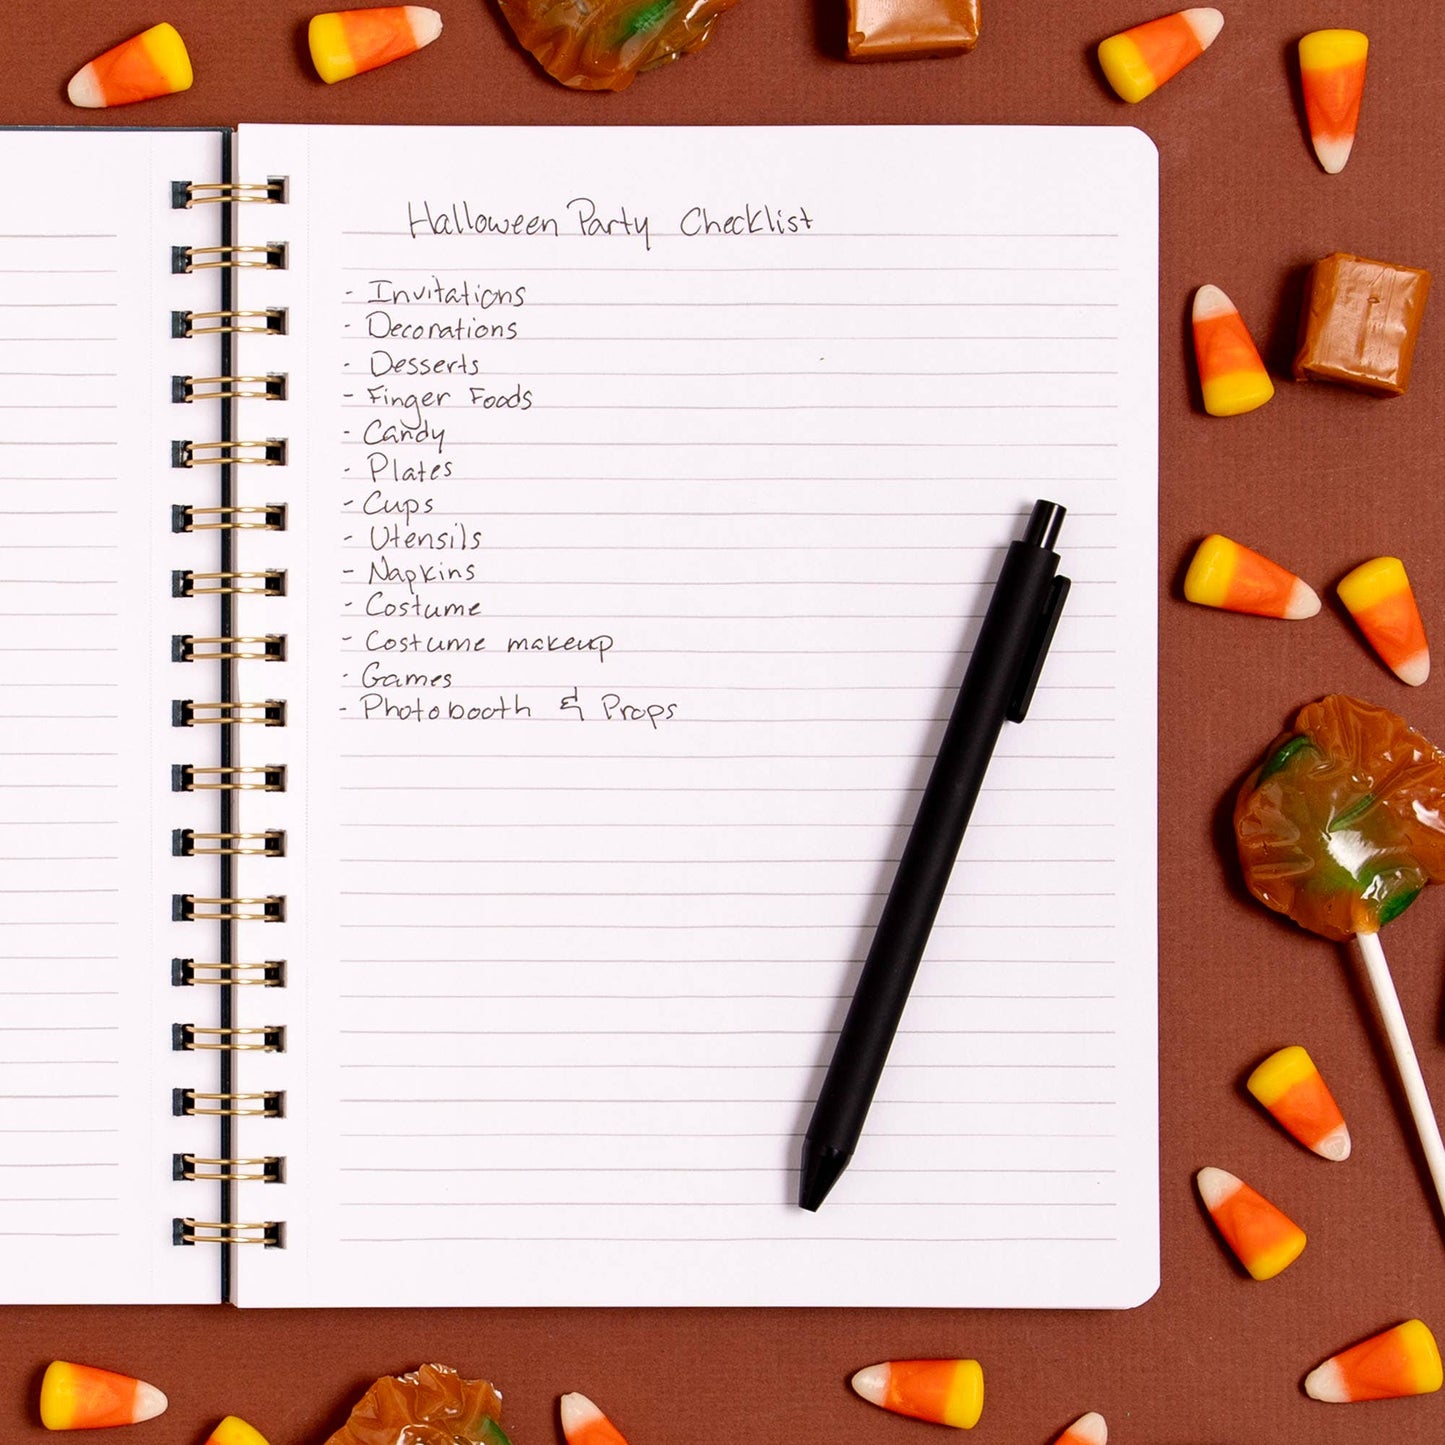 Halloween Party Checklist
- Invitations
- Decorations
- Desserts
- Finger Foods
- Candy
- Plates
- Cups
- Utensils
- Napkins
- Costume
- Costume makeup
- Games
- Photobooth & Props